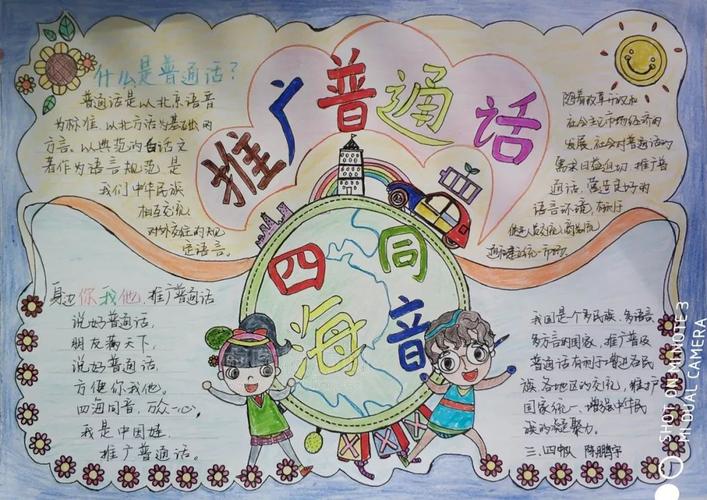 推广普通话
四海同音
什么是普通话？
普通话是以北京语音
为标准，以北方话为基础的
方言。以典范的白话文
著作为语言规范，是
我们中华民族
相互交流
对外交往的规
定语言。
随着改革开放和
社会主义市场经济的
发展，社会对普通话的
需求日益迫切，推广普
通话，营造良好的
语言环境，有利于
促进人员交流，商品流
通和建立统一市场。
身边你我他，推广普通话
说好普通话，
朋友满天下，
说好普通话，
方便你我他。
四海同音，万众一心，
我是中国娃，
推广普通话。
我国是个多民族、多语言、
多方言的国家，推广普及
普通话有利于增进各民
族各地区的交流，维护
国家统一，增强中华民
族的凝聚力。
三.四班 陈鹏宇
SHOT ON MI NOTE 3
MI DUAL CAMERA